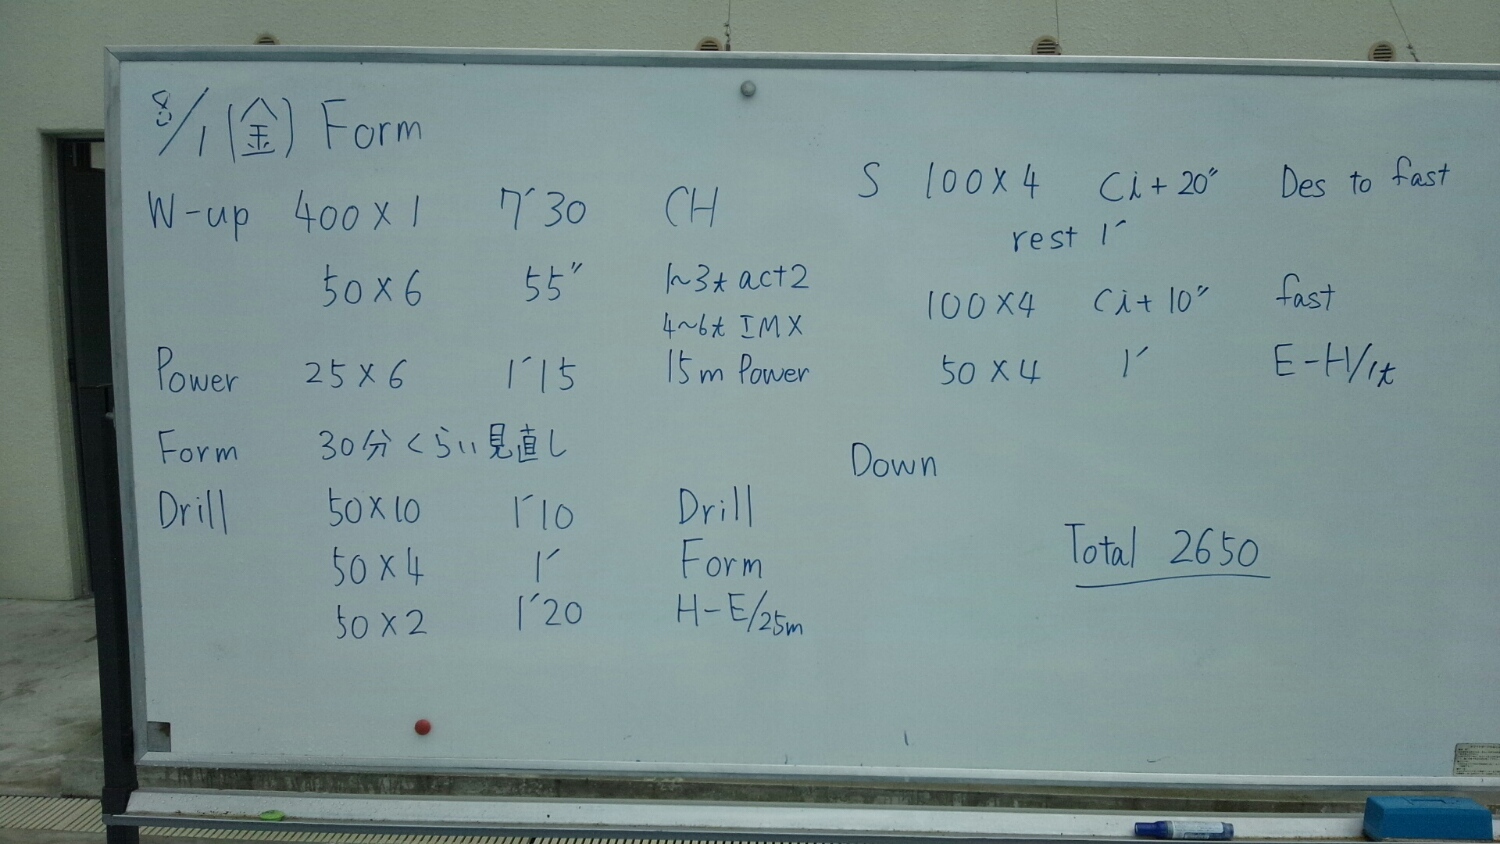 8/1 (金) Form
W-up 400×1 7′30 CH
50×6 55″ 1~3t act2
4~6t IMX
Power 25×6 1′15 15m Power
Form 30分くらい見直し
Drill 50×10 1′10 Drill
50×4 1′ Form
50×2 1′20 H-E/25m
S 100×4 Ci+20″ Des to fast
rest 1′
100×4 Ci+10″ fast
50×4 1′ E-H/1t
Down
Total 2650